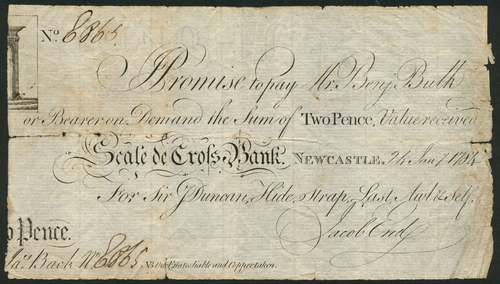 No. 6865
I Promise to pay Mr. Benj. Bulk
or Bearer on Demand the Sum of Two Pence, Value received
Scale de Cross Bank. Newcastle, 24 Jany 1784
For Sir J Duncan, Hide, Strap, Last, Awl & Self.
Jacob End
o Pence.
Back No. 6865 NB. Old taken.